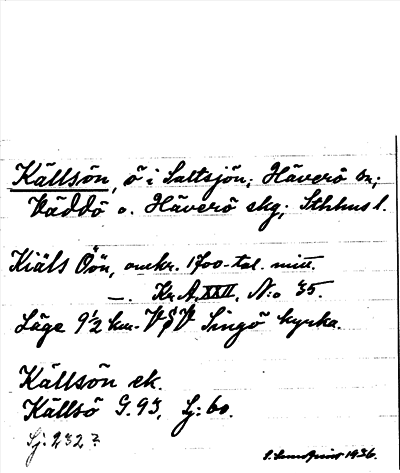 Källsön, ö i Saltsjön; Häverö sn;
Väddö o. Häverö skg; Sthlms l.
Kiäls Öön, omkr. 1700-tal. mitt.
—. Kr.A. XXII, N:o 35.
Läge 9 1/2 km. VSV Singö kyrka.
Källsön ek.
Källsö G. 93, Sj: 60.
Sj: 232?
S. Lundqvist 1936.